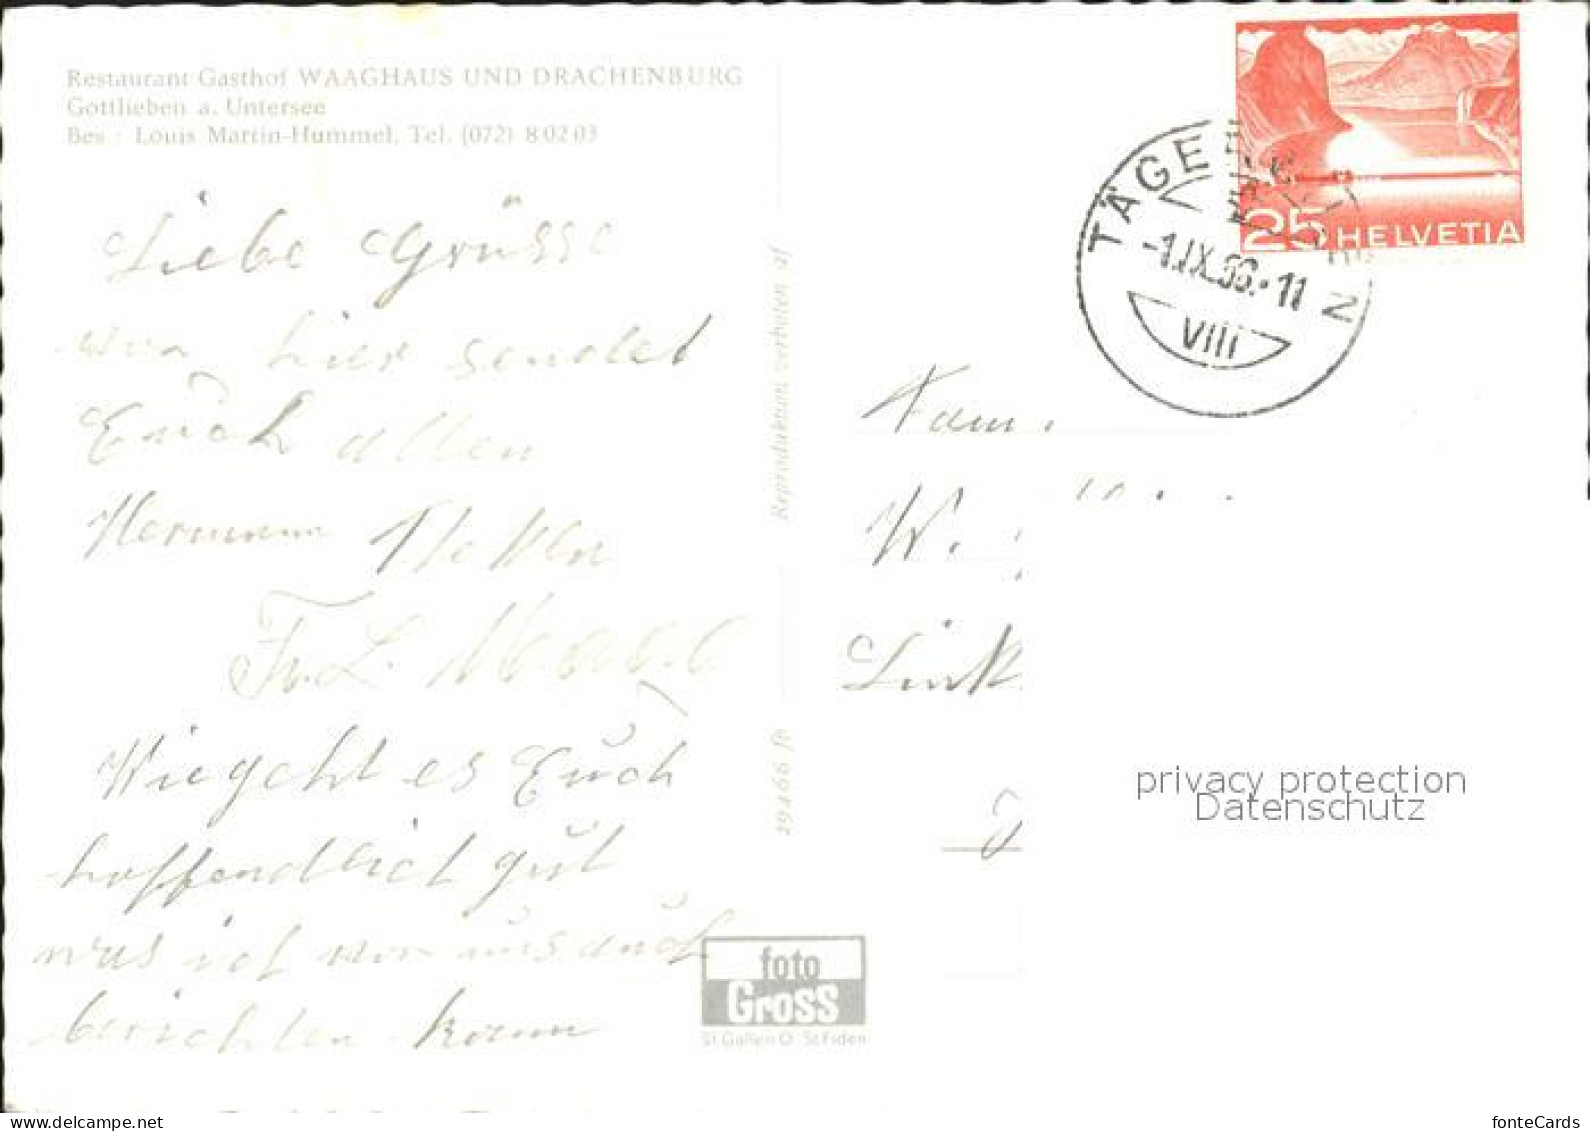 Restaurant Gasthof WAAGHAUS UND DRACHENBURG
Gottlieben a. Untersee
Bes : Louis Martin-Hummel, Tel. (072) 8 02 03
Liebe Grüsse
von hier sendet
Euch allen
Hermann
Fr. L.
Wie geht es Euch
hoffendlich gut
was ich von uns auch
berichten kann
Reproduktion verboten af
29466 fb
foto
Gross
St. Gallen O St. Fiden
HELVETIA
25
TÄGE N
-1.IX.56.-11
VIII
Fam.
W.
Link
privacy protection
Datenschutz
www.delcampe.net
fonteCards